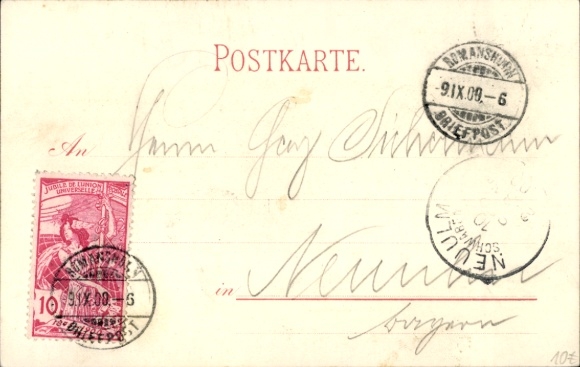 POSTKARTE.
ROMANSHORN
9.IX.00.-6
BRIEFPOST.
An Herrn
JUBILÉ DE L'UNION
UNIVERSELLE
10
ROMANSHORN
9.IX.00.-6
BRIEFPOST
NEU ULM
SCHWABEN
in Neu-Ulm
Bayern
10€